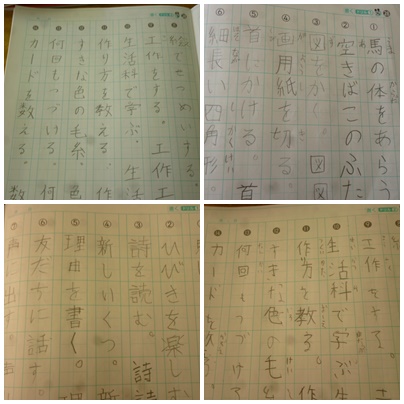 絵でせつめいする。
工作をする。 工作
生活科で学ぶ。 生活
作り方を教える。 作
すきな色の毛糸。 色
何回もつづける。 何
カードを数える。 数
①馬の体をあらう
②空きばこのふた
③図をかく。 図 図
④画用紙を切る。
⑤首にかける。 首
⑥細長い四角形。
②ひびきを楽しむ
③詩を読む。 詩 詩
④新しいくつ。 新
⑤理由を書く。 理
⑥友だちに話す。
⑦声 出す。
⑨工作をする。
⑩生活科で学ぶ 生
⑪作り方を教る 作
⑫すきな色の毛と
⑬何回もつづける
⑭カードを数える